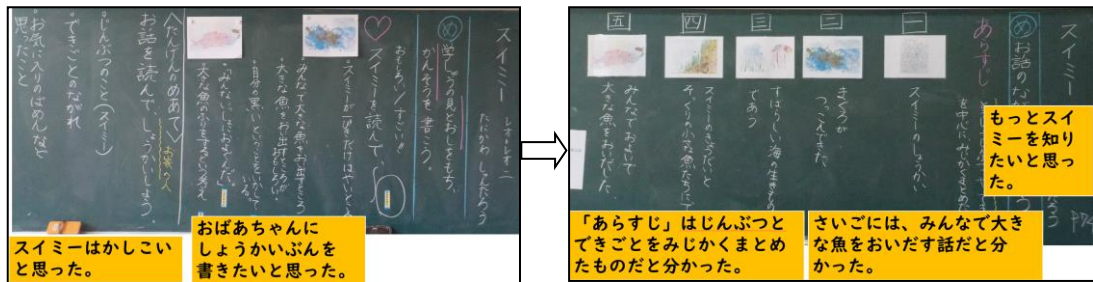 スイミー
レオ=レオニ
たにかわ しゅんたろう
め 学しゅうの見とおしをもち、
かんそうを書こう。
おもしろい!すごい!!
スイミーを読んで、
・スイミーが一ぴきだけはやいところ
・みんなで大きな魚をお出すところ
大きな魚をお出すところが
・自分の黒いということをいかして
いる。
・「みんないっしょにおよぐんだ。」
大きな魚のふりをするという考え
〈たんげんのめあて〉
お家の人
お話を読んで、しょうかいしよう。
・じんぶつのこと(スイミー)
・できごとのながれ
・お気に入りのばめんなど
思ったこと
スイミーはかしこい
と思った。
おばあちゃんに
しょうかいぶんを
書きたいと思った。
スイミー
め お話のなが
あらすじ
を中心にみじかくまとめた
P74
一
スイミーのしょうかい
二
まぐろが
つっこんできた。
三
すばらしい海の生きもの
であう
四
スイミーのきょうだいと
そっくりの小さな魚たちに
五
みんなでおよいで
大きな魚をおいだした。
もっとスイ
ミーを知り
たいと思っ
た。
「あらすじ」はじんぶつと
できごとをみじかくまとめ
たものだと分かった。
さいごには、みんなで大き
な魚をおいだす話だと分
かった。